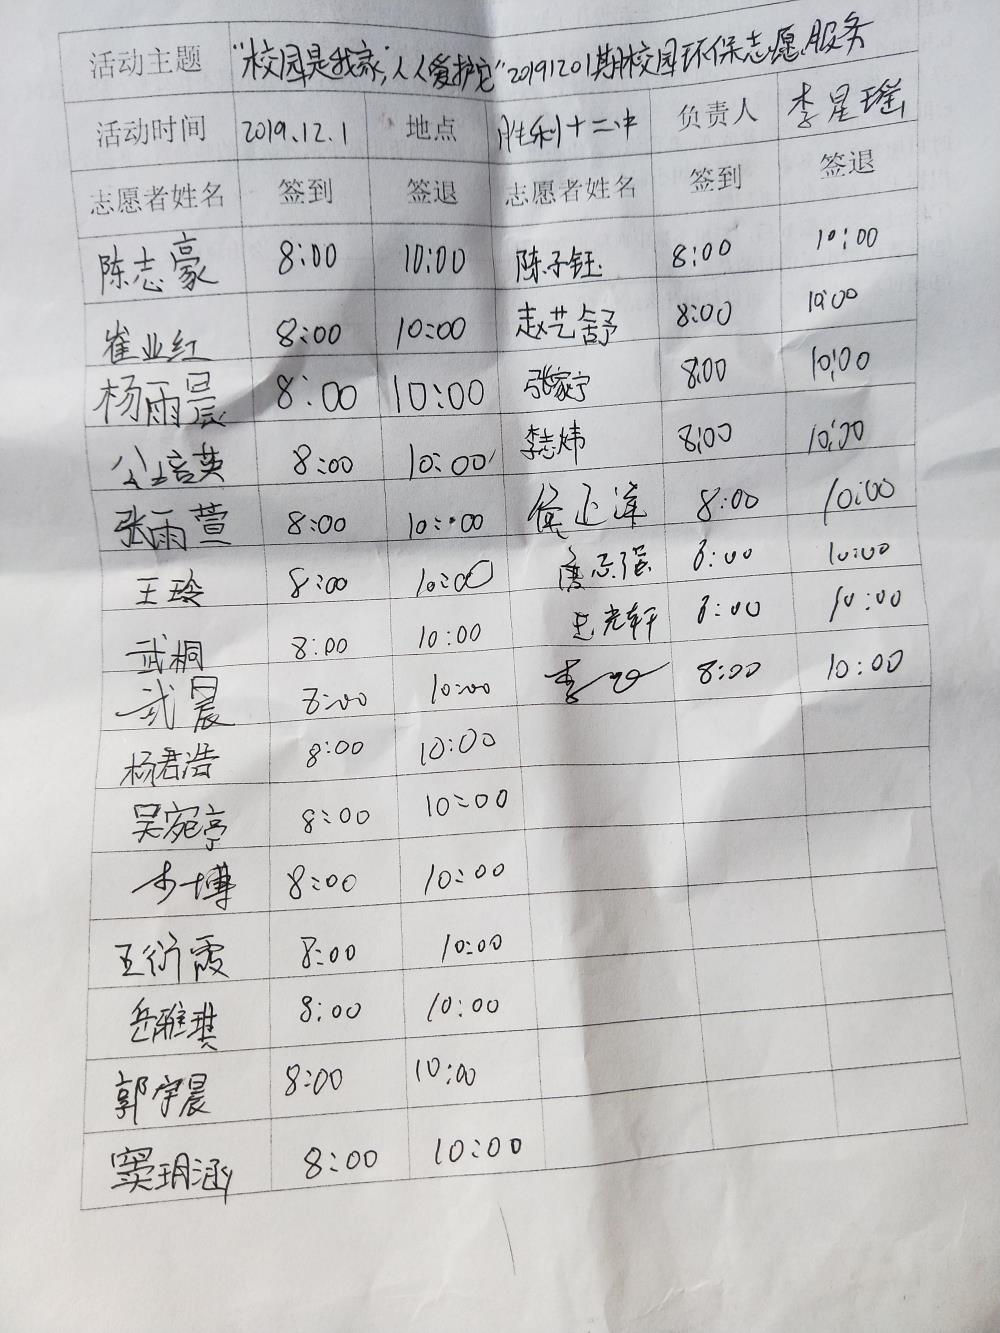 活动主题 "校园是我家,人人爱护它"20191201期校园环保志愿服务
活动时间 2019.12.1 地点 胜利十二中 负责人 李星瑶
志愿者姓名 签到 签退 志愿者姓名 签到 签退
陈志豪 8:00 10:00 陈子钰 8:00 10:00
崔业红 8:00 10:00 赵艺舒 8:00 10:00
杨雨晨 8:00 10:00 张家宁 8:00 10:00
公培英 8:00 10:00 李志炜 8:00 10:00
张雨萱 8:00 10:00 8:00 10:00
王玲 8:00 10:00 唐志强 8:00 10:00
武桐 8:00 10:00 光轩 8:00 10:00
武晨 8:00 10:00 李 8:00 10:00
杨君浩 8:00 10:00
吴宛亭 8:00 10:00
博 8:00 10:00
王衍霞 8:00 10:00
岳雅琪 8:00 10:00
郭宇晨 8:00 10:00
窦玥涵 8:00 10:00